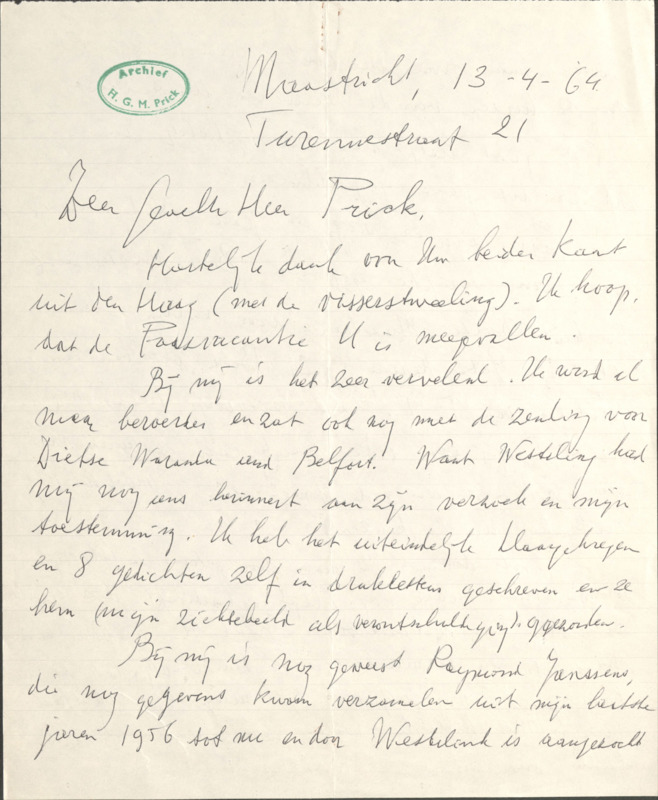 Archief
H. G. M. Prick
Maastricht, 13-4-'64
Turennestraat 21
Zeer geachte Heer Prick,
Hartelijk dank van Uw beider kaart
uit den Haag (met de visserstweeling). Ik hoop,
dat de Paasvacantie U is meegevallen.
Bij mij is het zeer vervelend. Ik werd al
maar beroerder en zat ook nog met de zending voor
Dietse Warande und Belfort. Want Westeling had
mij nog eens herinnert aan zijn verzoek en mijn
toestemming. Ik heb het uiteindelijk klaargekregen
en 8 gedichten zelf in drukletters geschreven en ze
hem (mijn ziektebeeld als verontschuldiging) gezonden.
Bij mij is nog geweest Raymond Janssens,
die nog gegevens kwam verzamelen uit mijn laatste
jaren 1956 tot nu en door Westelink is aangezocht